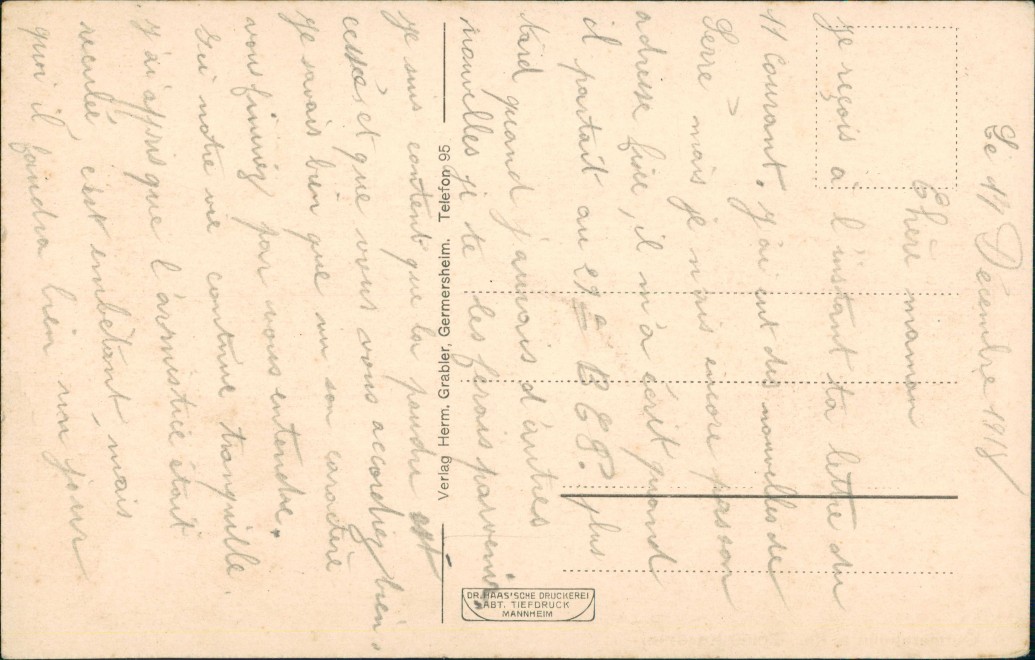 Le 17 Décembre 1918
Chère maman
Je reçois à l'instant ta lettre du
11 courant. J'ai eut des nouvelles de
Serre mais je n'ais encore pas son
adresse fixe, il m'a écrit quand
il partait au 27e B C P. plus
tard quand j'aurais d'autres
nouvelles je te les ferais parvenir.
Je suis content que la poudre est
cessée, et que vous vous accordiez bien,
je savais bien que vu son caractère
vous finiriez par vous entendre.
Ici notre vie continue tranquille
j'ai appris que l'armistice était
reculé, c'est embêtant, mais
quoi il faudra bien un jour
Verlag Herm. Grabler, Germersheim. Telefon 95
DR. HAAS'SCHE DRUCKEREI
ABT. TIEFDRUCK
MANNHEIM